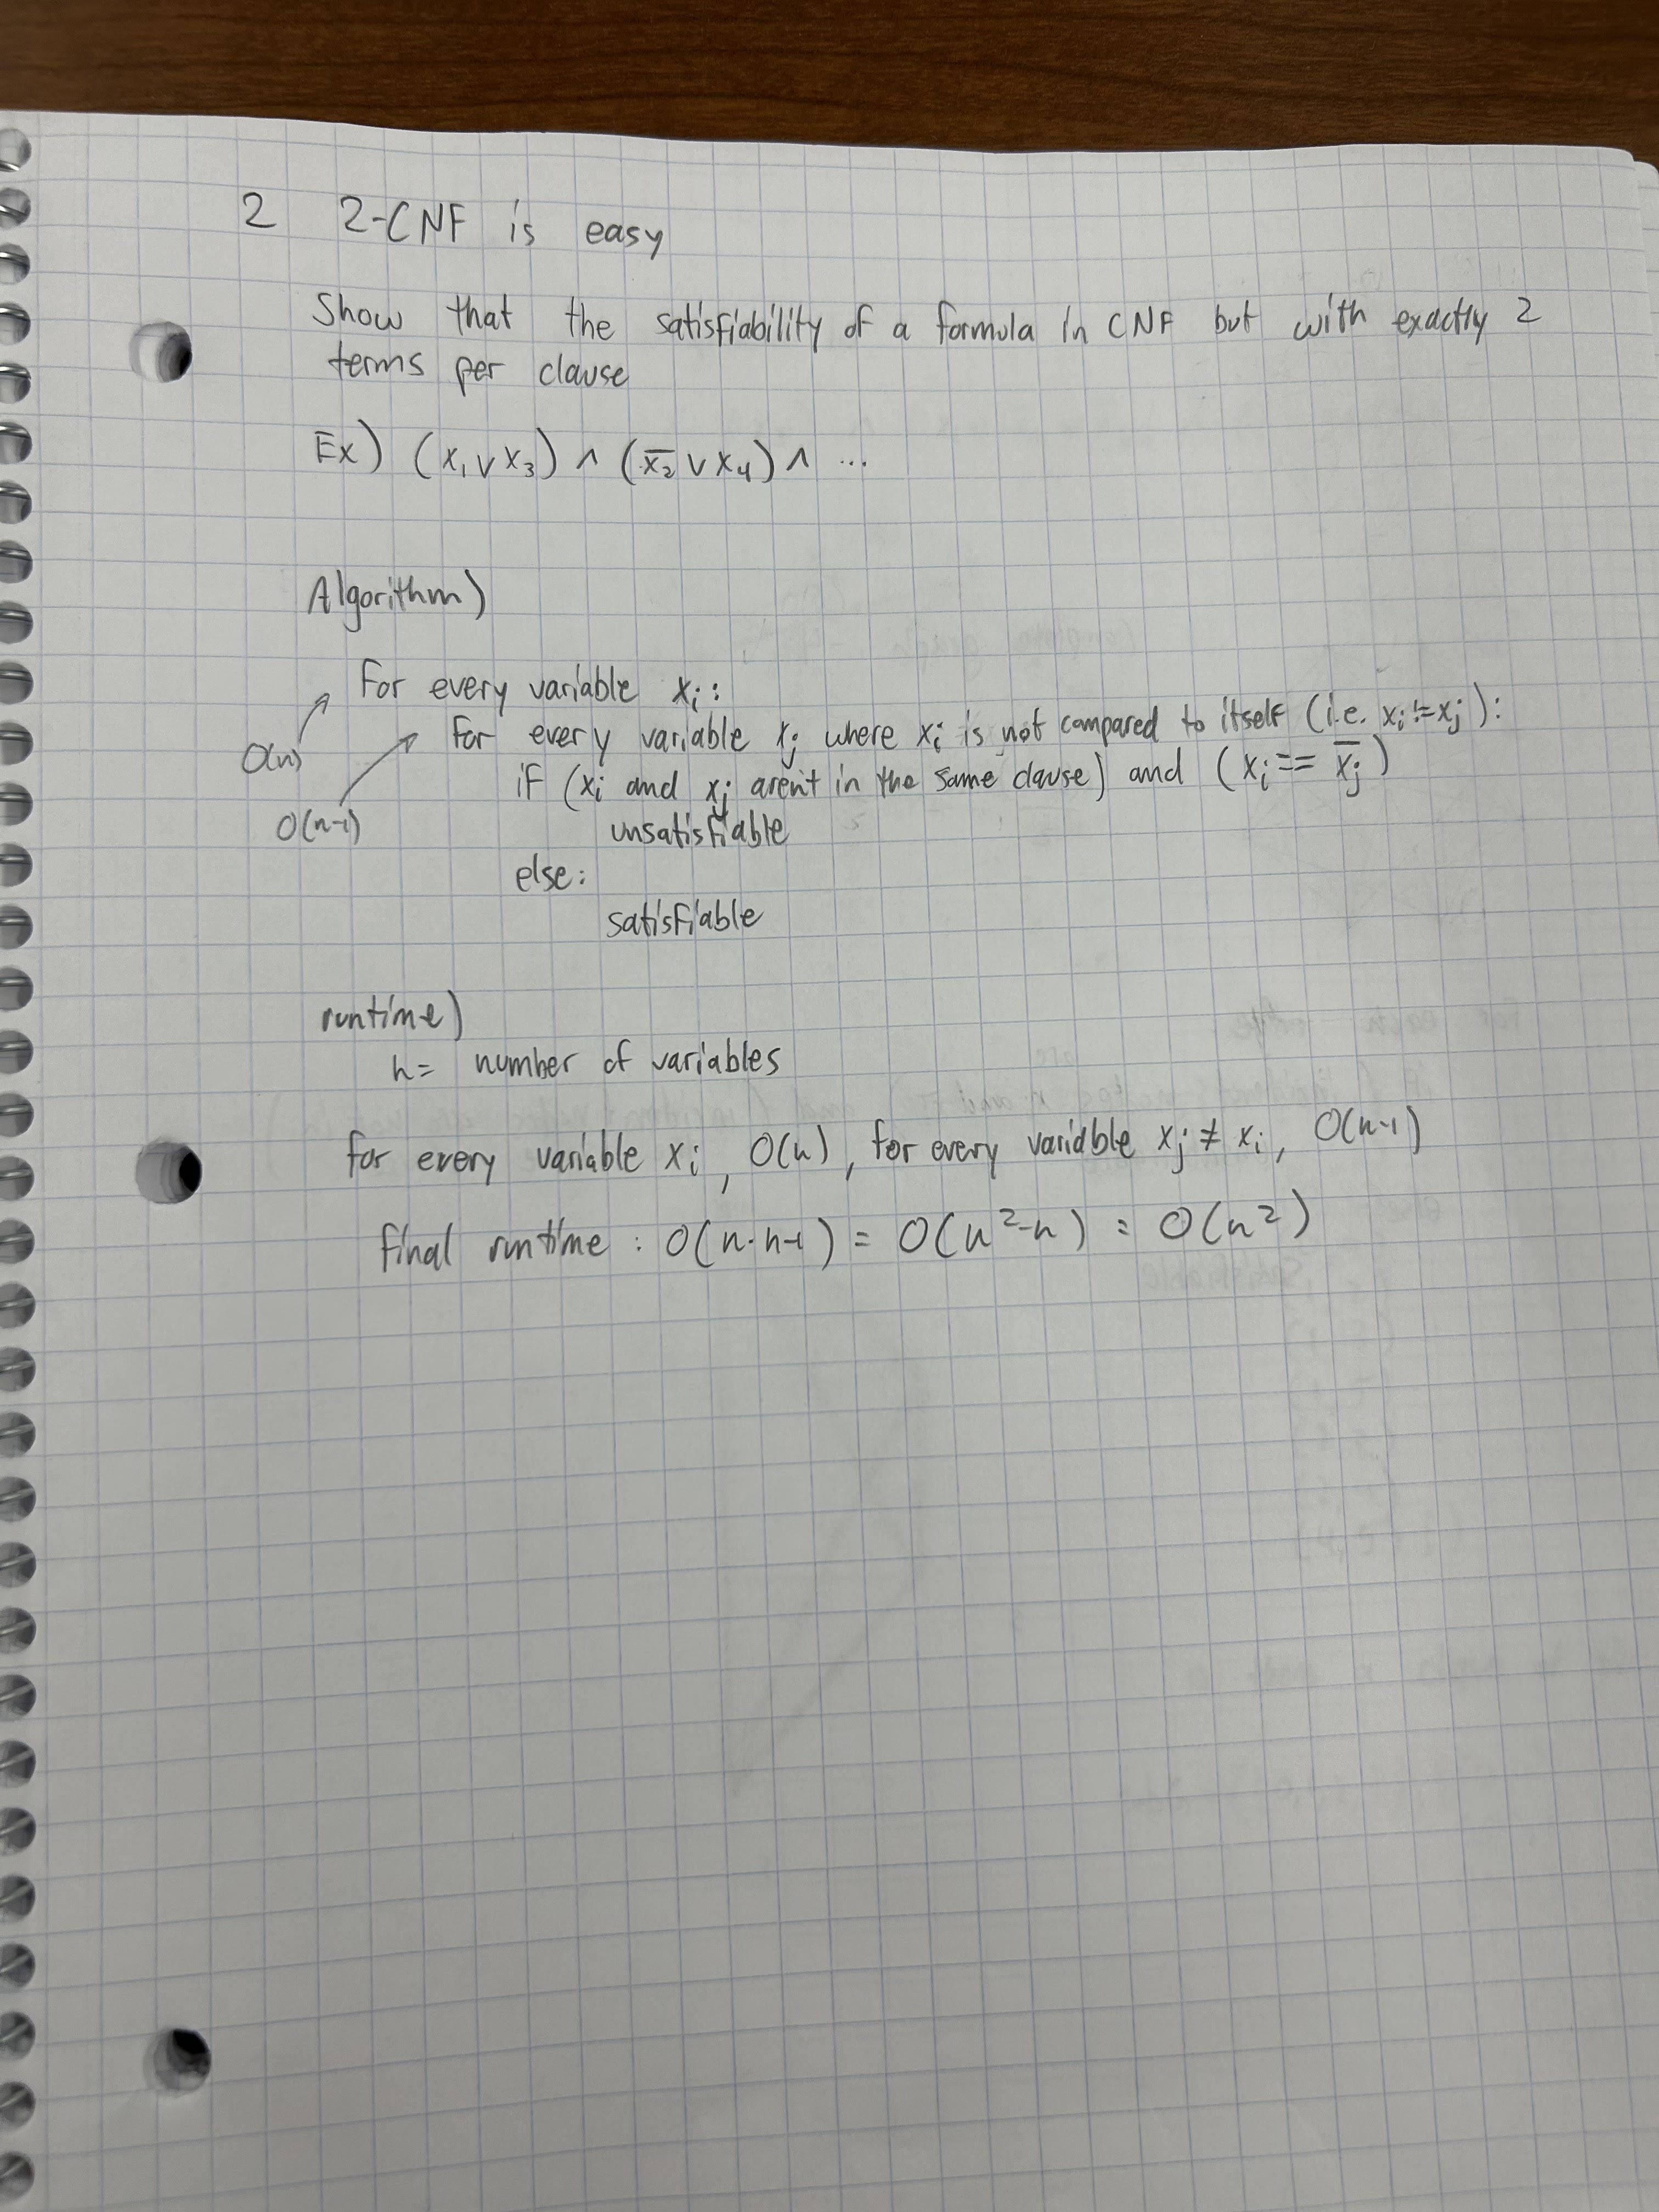 2 2-CNF is easy
Show that the satisfiability of a formula in CNF but with exactly 2
terms per clause
Ex) (x₁ ∨ x₃) ∧ (x̅₂ ∨ x₄) ∧ ...
Algorithm)
For every variable xᵢ:
O(n)
For every variable xⱼ where xᵢ is not compared to itself (i.e. xᵢ != xⱼ):
O(n-1)
if (xᵢ and xⱼ aren't in the same clause) and (xᵢ == x̅ⱼ)
unsatisfiable
else:
satisfiable
runtime)
n = number of variables
for every variable xᵢ, O(n), for every variable xⱼ ≠ xᵢ, O(n-1)
final runtime : O(n·n-1) = O(n²-n) = O(n²)